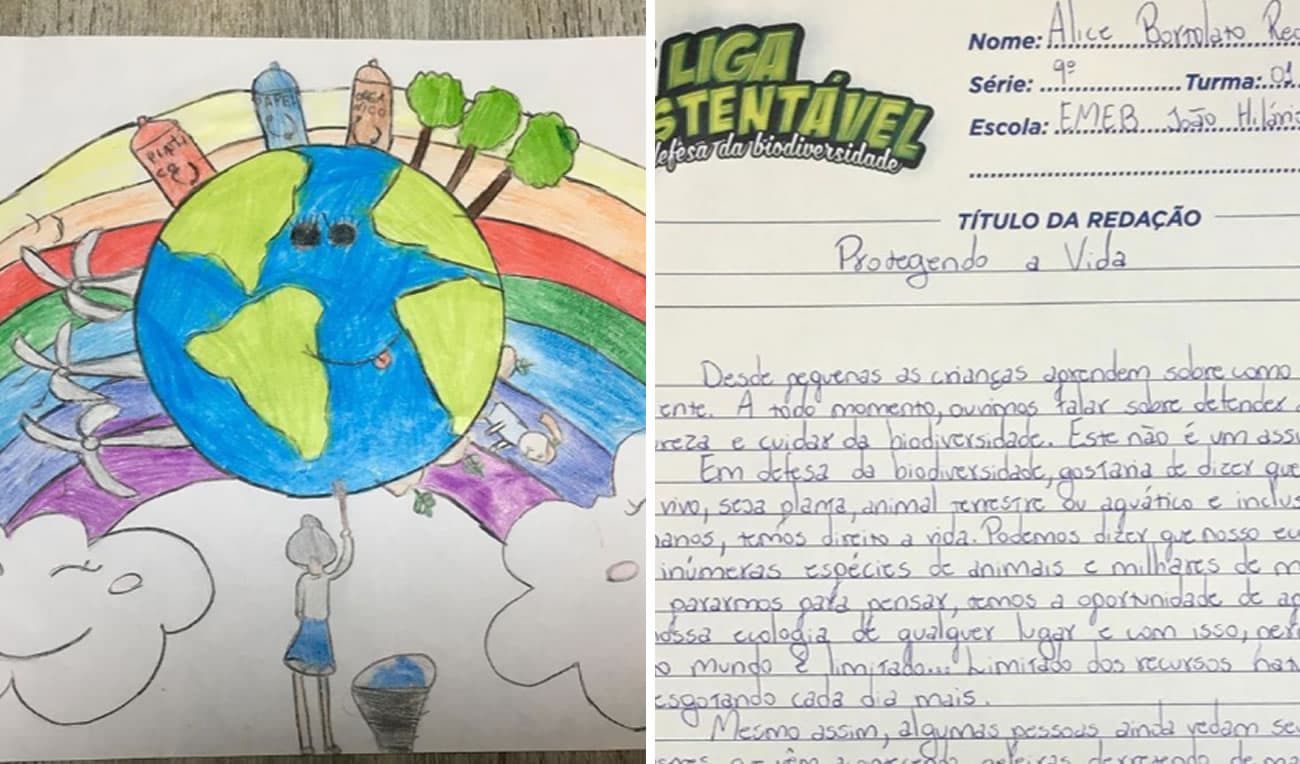 PAPEL
LIGA
SUSTENTÁVEL
defesa da biodiversidade
Nome: Alice Bortolato
Série: 9º Turma: 01
Escola: EMEB João Hilário
TÍTULO DA REDAÇÃO
Protegendo a Vida
Desde pequenas as crianças aprendem sobre como
ente. A todo momento, ouvimos falar sobre defender
reza e cuidar da biodiversidade. Este não é um assu
Em defesa da biodiversidade, gostaria de dizer que
vivo, seja planta, animal terrestre ou aquático e inclus
anos, temos direito a vida. Podemos dizer que nosso
inúmeras espécies de animais e milhares de
pararmos para pensar, temos a oportunidade de
ossa ecologia de qualquer lugar e com isso,
o mundo é limitado... Limitado dos recursos
esgotando cada dia mais.
Mesmo assim, algumas pessoas ainda vedam